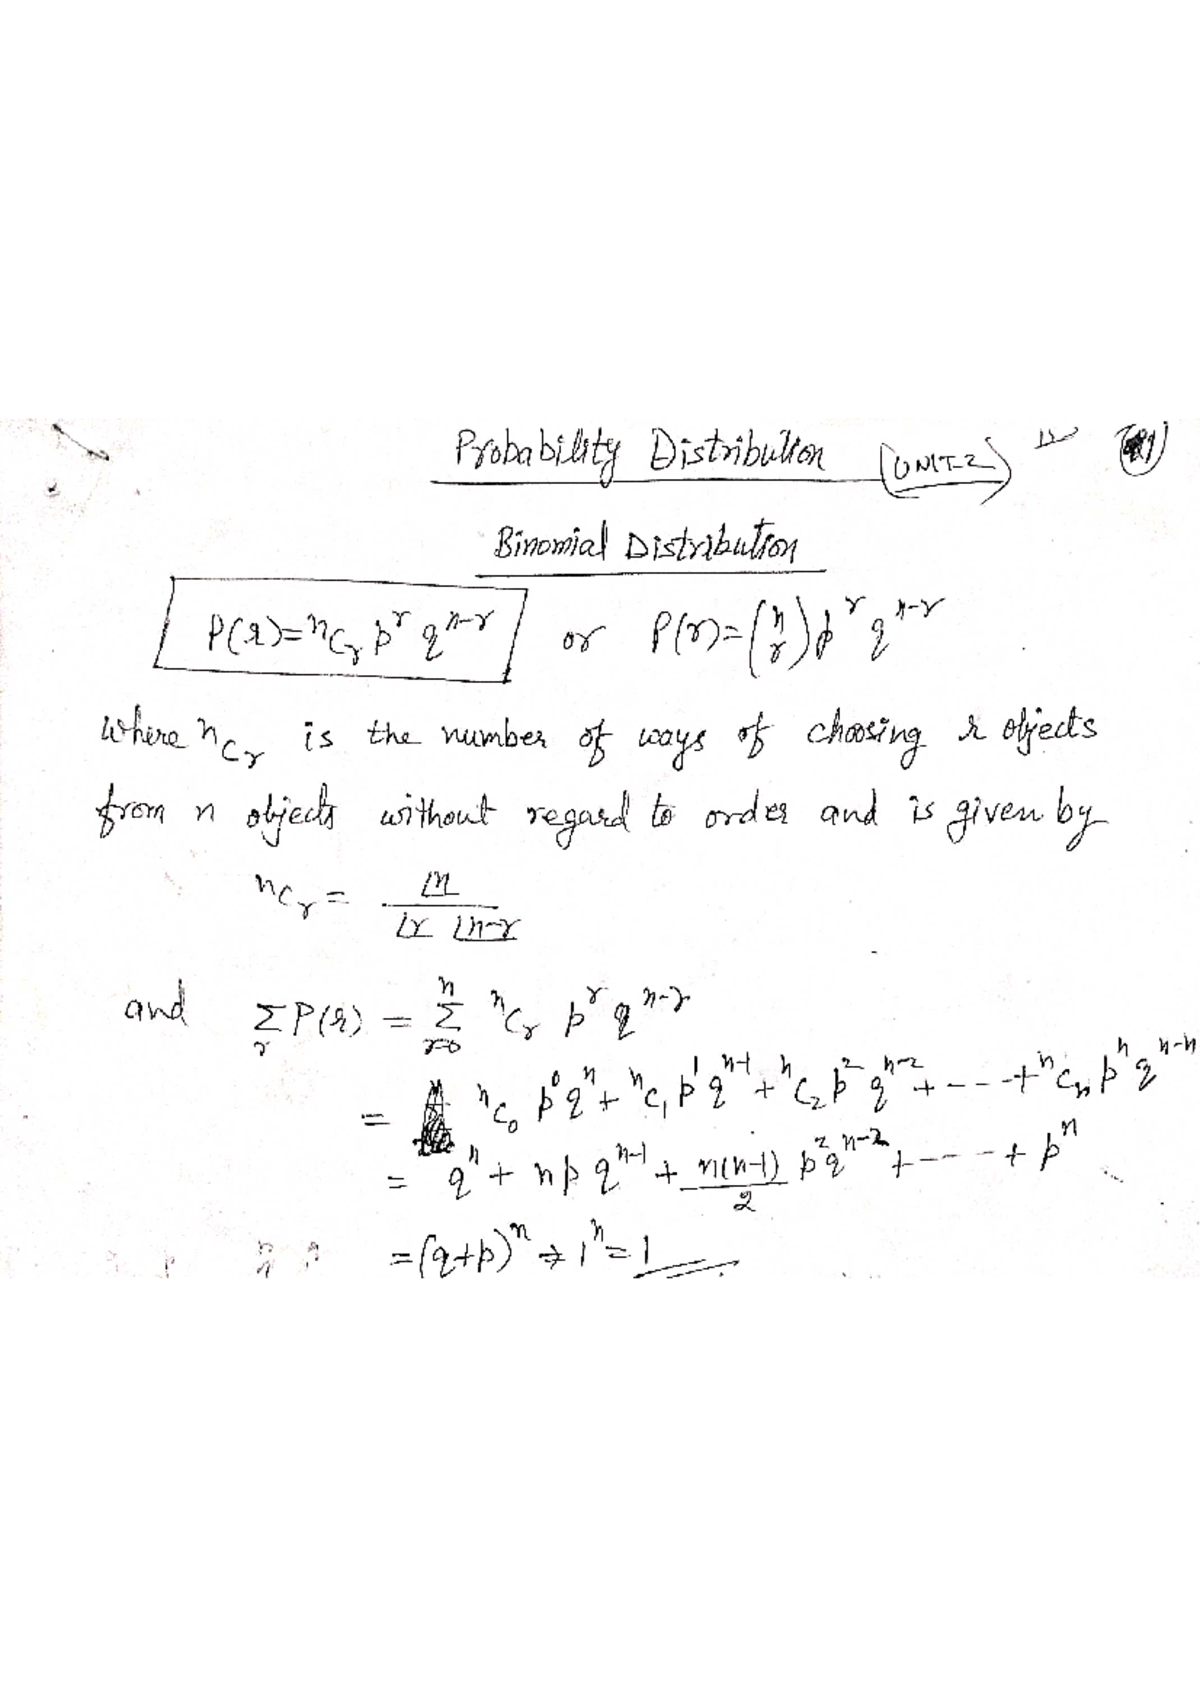 Probability Distribution (UNIT-2)
Binomial Distribution
P(r)=ⁿCᵣ pʳ qⁿ⁻ʳ or P(r)=(n r) pʳ qⁿ⁻ʳ
where ⁿCᵣ is the number of ways of choosing r objects
from n objects without regard to order and is given by
ⁿCᵣ = |n / |r |n-r
and Σᵣ P(r) = Σ_{r=0}^{n} ⁿCᵣ pʳ qⁿ⁻ʳ
= ⁿC₀ p⁰qⁿ + ⁿC₁ p¹qⁿ⁻¹ + ⁿC₂ p² qⁿ⁻² + - - - + ⁿCₙ pⁿ qⁿ⁻ⁿ
= qⁿ + npqⁿ⁻¹ + n(n-1)/2 p²qⁿ⁻² + - - - + pⁿ
= (q+p)ⁿ ⇒ 1ⁿ = 1